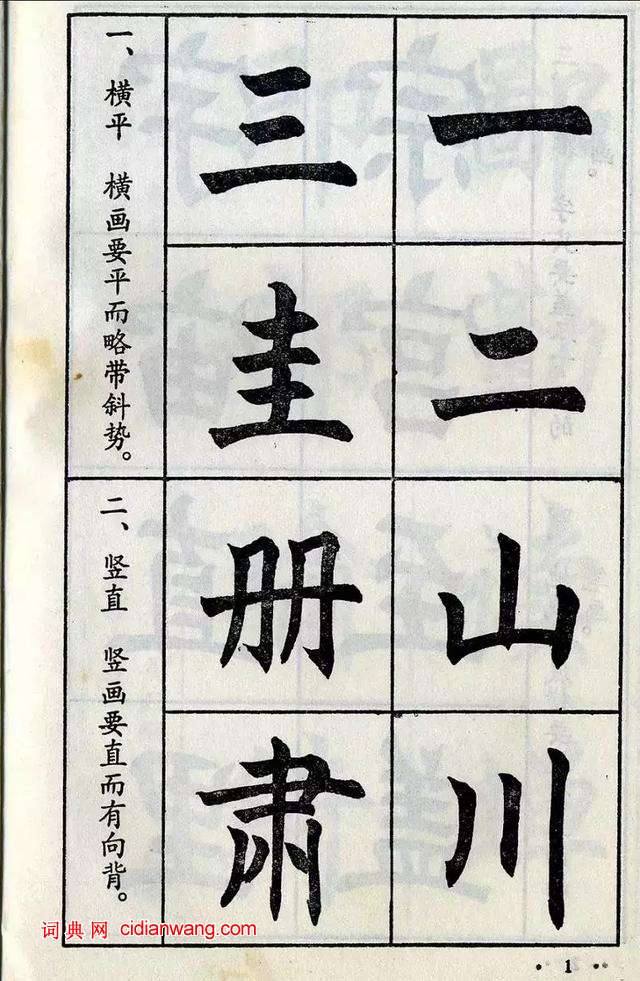 一
二
三
圭
一、横平　横画要平而略带斜势。
山
川
册
肃
二、竖直　竖画要直而有向背。
词典网 cidianwang.com
· 1 ··